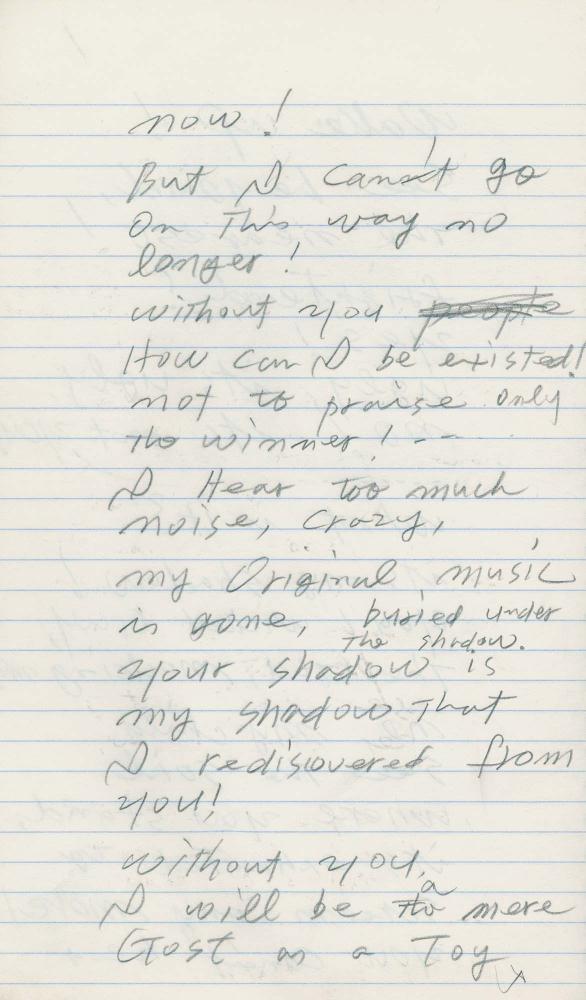 now!
But I can't go
on This way no
longer!
without you people
How can I be existed!
not to praise only
the winner! --
I Hear too much
noise, crazy,
my Original music
is gone, buried under
the shadow.
your shadow is
my shadow that
I rediscovered from
you!
without you,
I will be a mere
Gost as a Toy